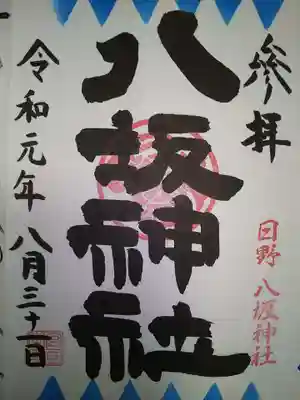 參拝
日野 八坂神社
八坂神社
令和元年 八月三十一日